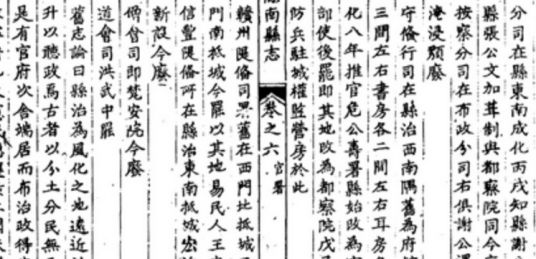 分司在縣東南成化丙戌知縣謝
縣張公文加葺制與都察院同今
按察分司在布政分司右俱謝公
淹浸頹廢
守備行司在縣治西南隅舊為府
三間左右書房各二間左右耳房各
化八年推官危公壽署縣始改為
部使後罷即其地改為都察院戊
防兵駐城權監營房於此
南縣志
卷之六
官署
贛州隄備司署舊在西門址抵城
門南抵城今罷以其地易民人王
信豐隄備所在縣治東南抵城宏
新設今廢
僧會司即梵安院今廢
道會司洪武中罷
舊志論曰縣治為風化之地遠近
升以聽政焉古者以分土分民無
是有官府次舍端居而布治政得